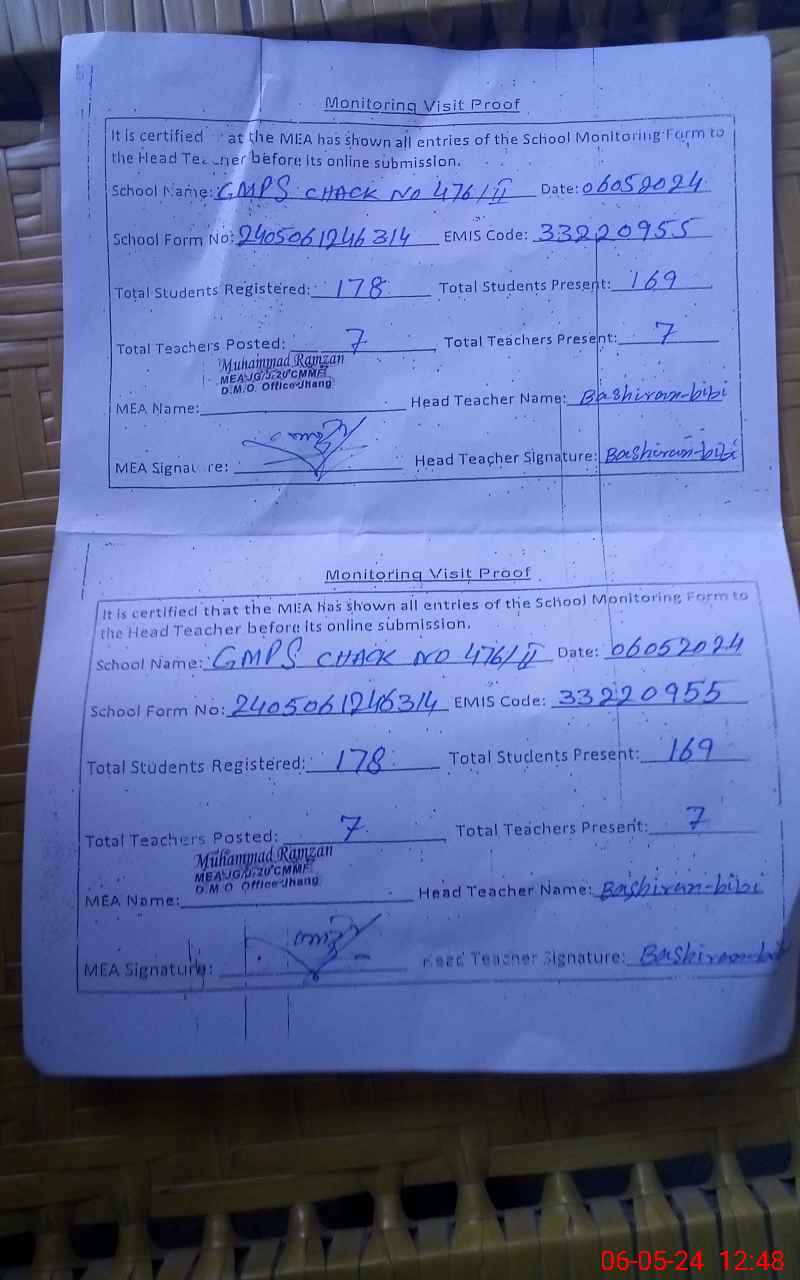 Monitoring Visit Proof
It is certified at the MEA has shown all entries of the School Monitoring Form to
the Head Teacher before its online submission.
School Name: GMPS CHACK NO 476/II Date: 06052024
School Form No: 2405061246314 EMIS Code: 33220955
Total Students Registered: 178 Total Students Present: 169
Total Teachers Posted: 7 Total Teachers Present: 7
Muhammad Ramzan
MEA JG/J-20 CMMF
D.M.O. Office Jhang
MEA Name: Head Teacher Name: Bashiran-bibi
MEA Signature: Head Teacher Signature: Bashiran-bibi
Monitoring Visit Proof
It is certified that the MEA has shown all entries of the School Monitoring Form to
the Head Teacher before its online submission.
School Name: GMPS CHACK NO 476/II Date: 06052024
School Form No: 2405061246314 EMIS Code: 33220955
Total Students Registered: 178 Total Students Present: 169
Total Teachers Posted: 7 Total Teachers Present: 7
Muhammad Ramzan
MEA JG/J-20 CMMF
D.M.O Office Jhang
MEA Name: Head Teacher Name: Bashiran-bibi
MEA Signature: Head Teacher Signature: Bashiran-bibi
06-05-24 12:48